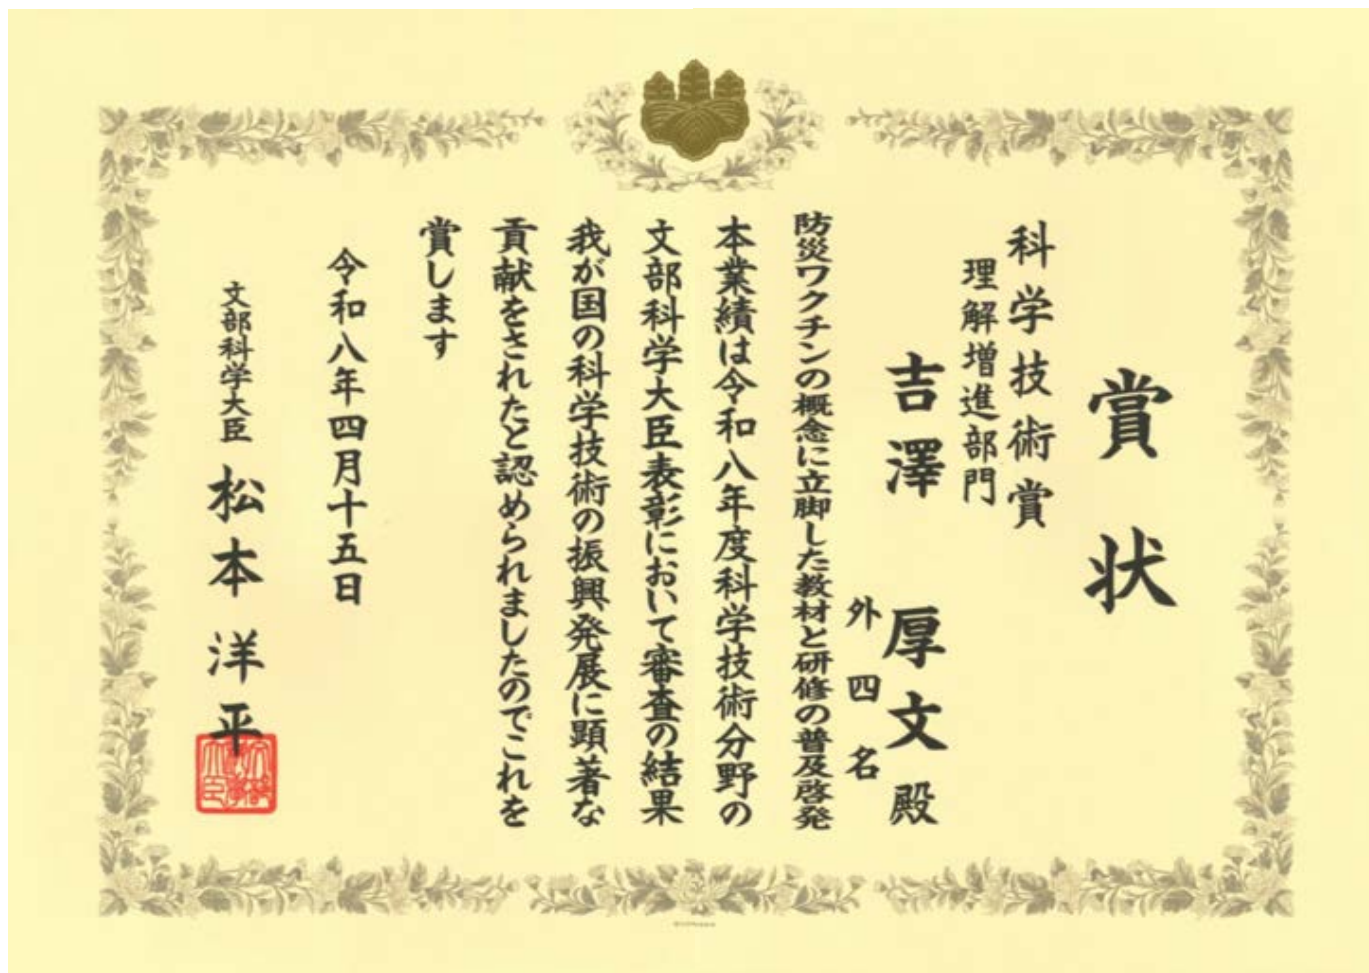 賞状
科学技術賞
理解増進部門
吉澤 厚文 殿
外四名
防災ワクチンの概念に立脚した教材と研修の普及啓発
本業績は令和八年度科学技術分野の
文部科学大臣表彰において審査の結果
我が国の科学技術の振興発展に顕著な
貢献をされたと認められましたのでこれを
賞します
令和八年四月十五日
文部科学大臣 松本 洋平